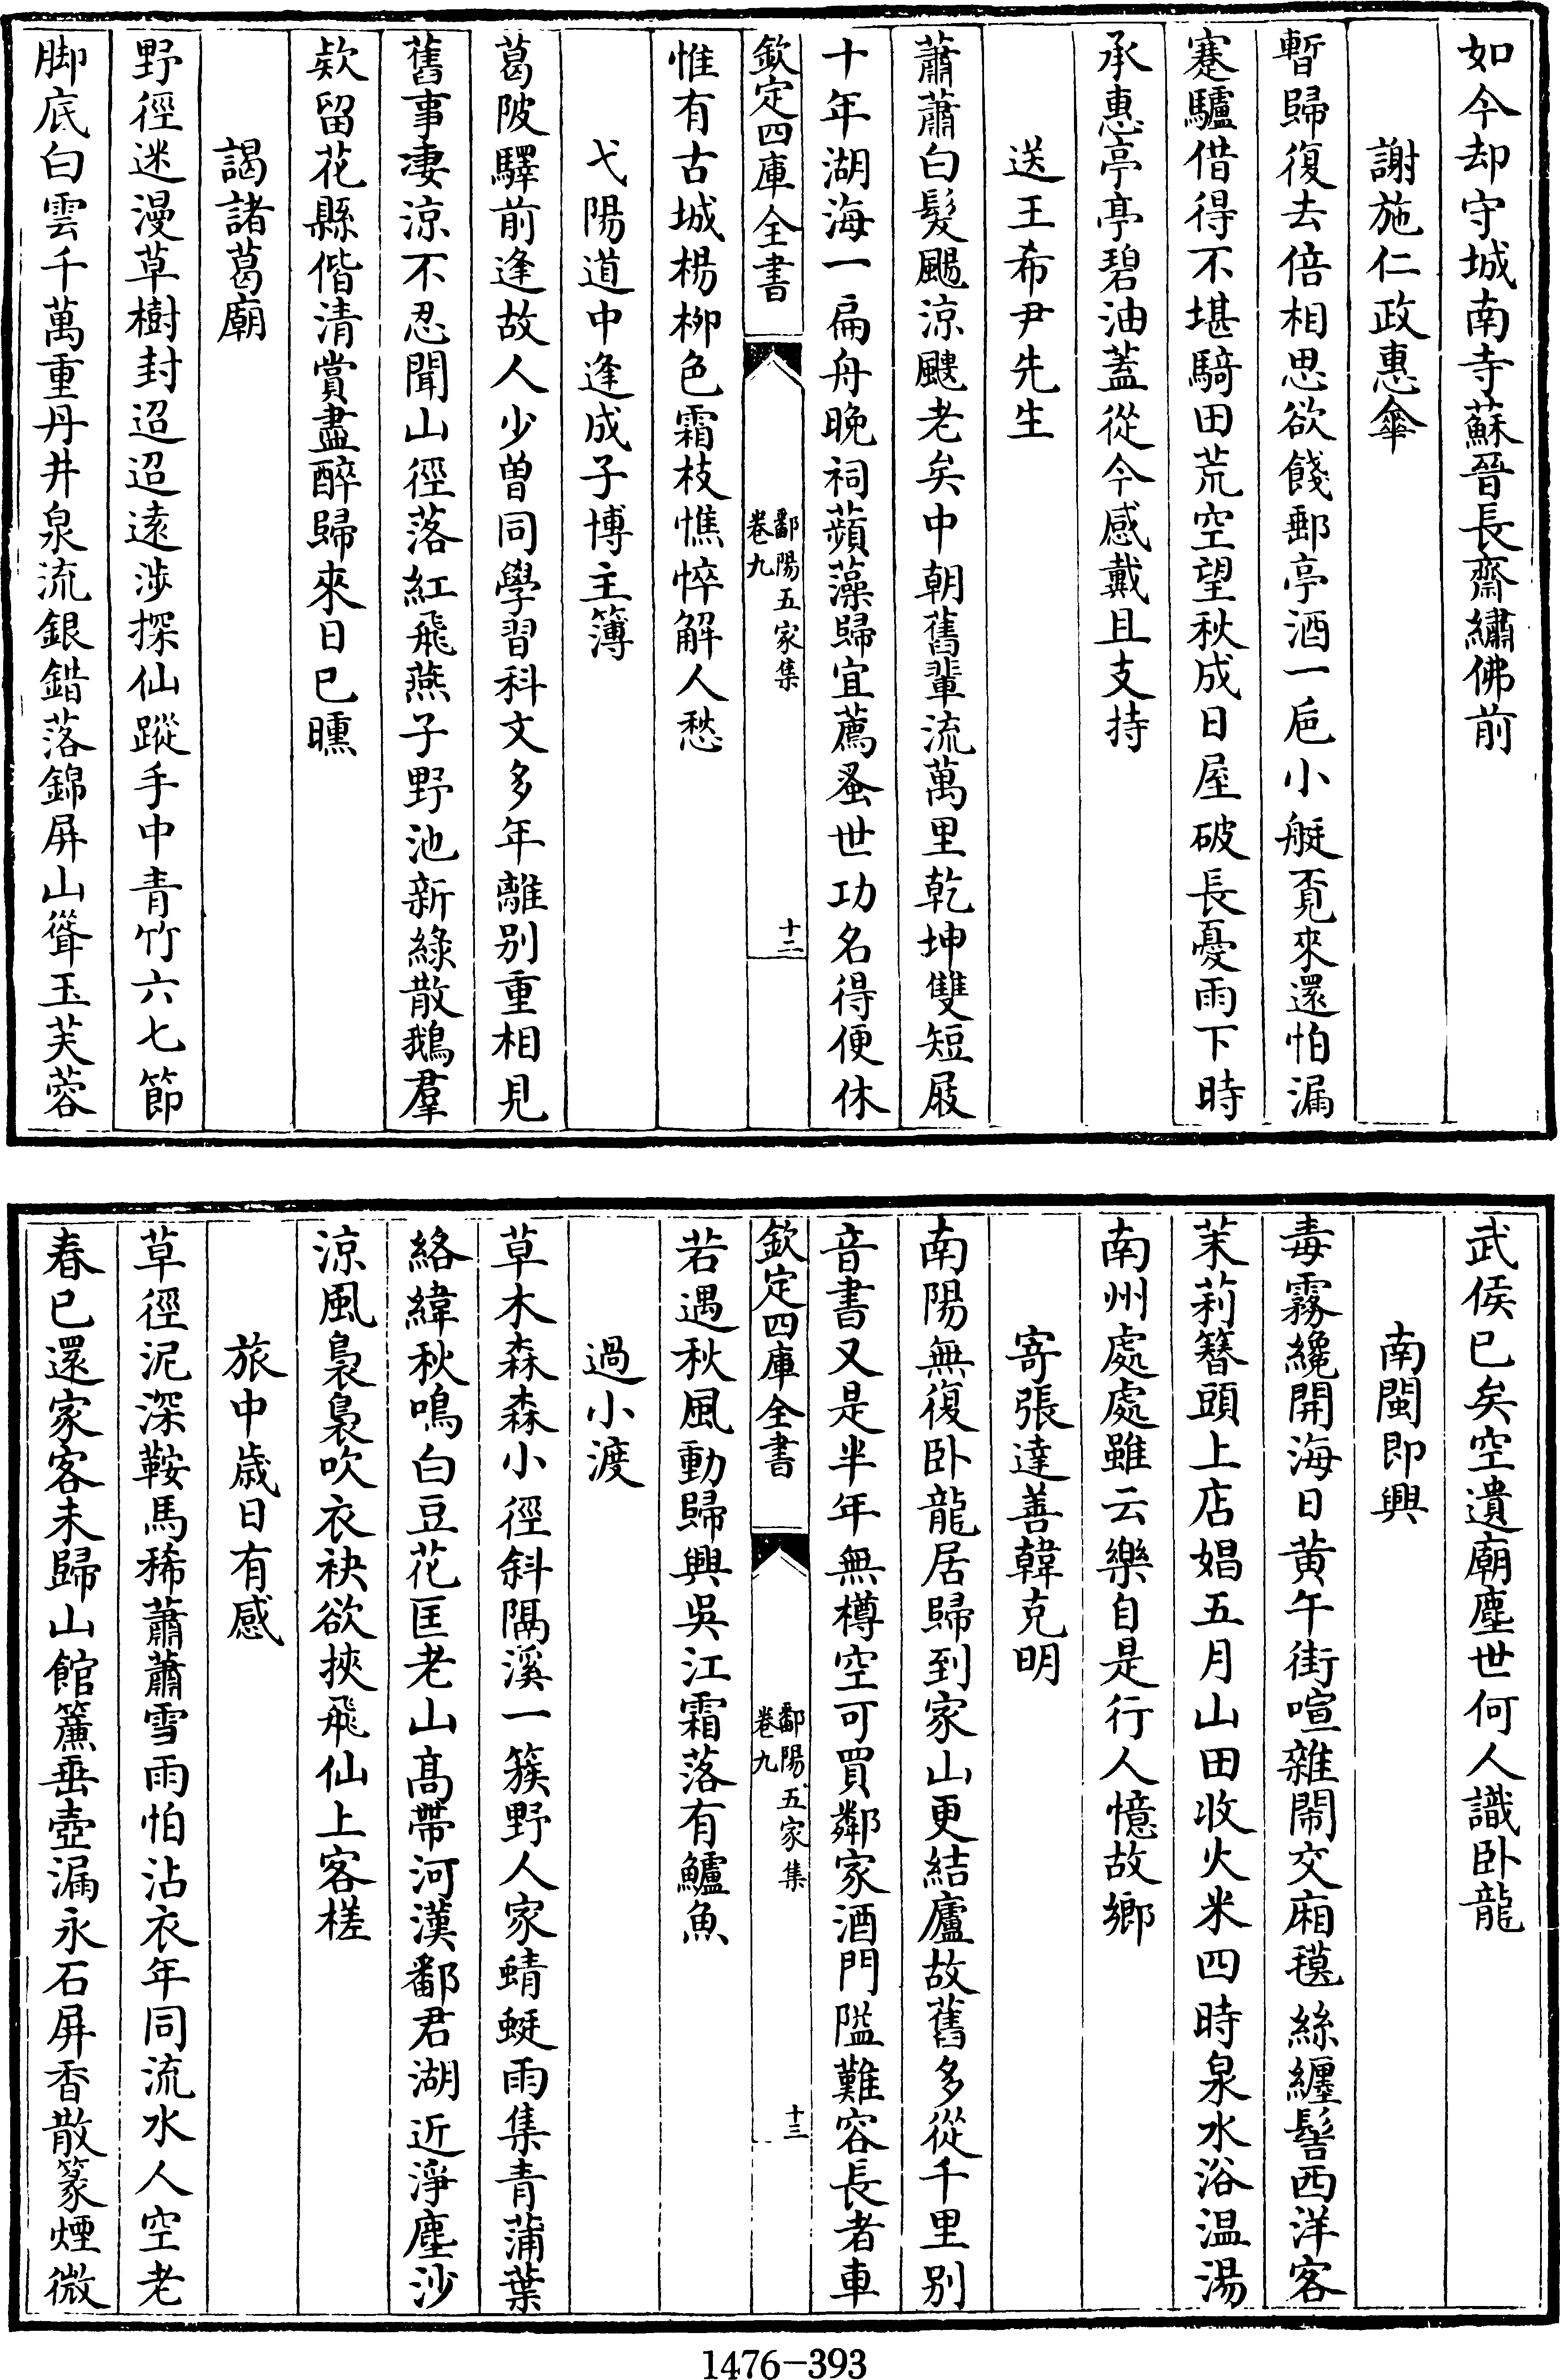 如今却守城南寺蘇晉長齋繡佛前
謝施仁政惠傘
暫歸復去倍相思欲餞郵亭酒一巵小艇覔來還怕漏
蹇驢借得不堪騎田荒空望秋成日屋破長憂雨下時
承惠亭亭碧油蓋從今感戴且支持
送王希尹先生
蕭蕭白髮颺涼颸老矣中朝舊輩流萬里乾坤雙短屐
十年湖海一扁舟晚祠蘋藻歸宜薦蚤世功名得便休
欽定四庫全書
鄱陽五家集
卷九
十二
惟有古城楊柳色霜枝憔悴解人愁
弋陽道中逢成子博主簿
葛陂驛前逢故人少曽同學習科文多年離别重相見
舊事凄涼不忍聞山徑落紅飛燕子野池新綠散鵝羣
欵留花縣偕清賞盡醉歸來日已曛
謁諸葛廟
野徑迷漫草樹封迢迢遠涉探仙蹤手中青竹六七節
脚底白雲千萬重丹井泉流銀錯落錦屏山聳玉芙蓉
武侯已矣空遺廟塵世何人識卧龍
南閩即興
毒霧纔開海日黄午街喧雜鬧交廂㲠絲纏髻西洋客
茉莉簪頭上店娼五月山田收火米四時泉水浴温湯
南州處處雖云樂自是行人憶故鄉
寄張達善韓克明
南陽無復卧龍居歸到家山更結廬故舊多從千里别
音書又是半年無樽空可買鄰家酒門隘難容長者車
欽定四庫全書
鄱陽五家集
卷九
十三
若遇秋風動歸興吳江霜落有鱸魚
過小渡
草木森森小徑斜隔溪一簇野人家蜻蜓雨集青蒲葉
絡緯秋鳴白豆花匡老山髙帶河漢鄱君湖近淨塵沙
涼風裊裊吹衣袂欲挾飛仙上客槎
旅中歲日有感
草徑泥深鞍馬稀蕭蕭雪雨怕沾衣年同流水人空老
春已還家客未歸山館簾垂壺漏永石屏香散篆煙微
1476-393